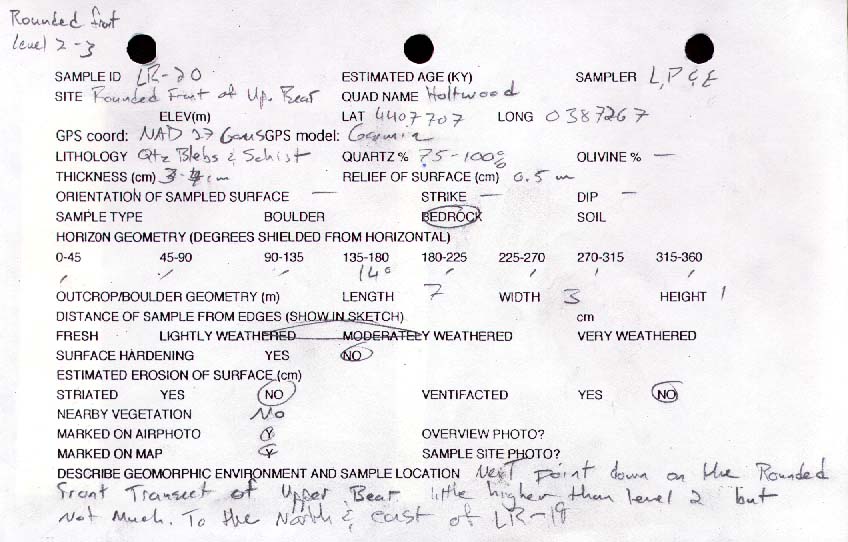 Rounded front
level 2-3
SAMPLE ID LR-20 ESTIMATED AGE (KY) SAMPLER L, P & E
SITE Rounded Front of Up. Bear QUAD NAME Holtwood
ELEV(m) LAT 4407707 LONG 0387267
GPS coord: NAD 27 Conus GPS model: Garmin
LITHOLOGY Qtz Blebs & Schist QUARTZ % 75-100% OLIVINE % —
THICKNESS (cm) cm RELIEF OF SURFACE (cm) 0.5 m
ORIENTATION OF SAMPLED SURFACE — STRIKE — DIP —
SAMPLE TYPE BOULDER BEDROCK SOIL
HORIZON GEOMETRY (DEGREES SHIELDED FROM HORIZONTAL)
0-45 45-90 90-135 135-180 180-225 225-270 270-315 315-360
/ / / 14° / / / /
OUTCROP/BOULDER GEOMETRY (m) LENGTH 7 WIDTH 3 HEIGHT 1
DISTANCE OF SAMPLE FROM EDGES (SHOW IN SKETCH) cm
FRESH LIGHTLY WEATHERED MODERATELY WEATHERED VERY WEATHERED
SURFACE HARDENING YES NO
ESTIMATED EROSION OF SURFACE (cm)
STRIATED YES NO VENTIFACTED YES NO
NEARBY VEGETATION No
MARKED ON AIRPHOTO Y OVERVIEW PHOTO?
MARKED ON MAP Y SAMPLE SITE PHOTO?
DESCRIBE GEOMORPHIC ENVIRONMENT AND SAMPLE LOCATION Next point down on the Rounded
Front Transect of Upper Bear little higher than level 2 but
Not Much. To the North & east of LR-19